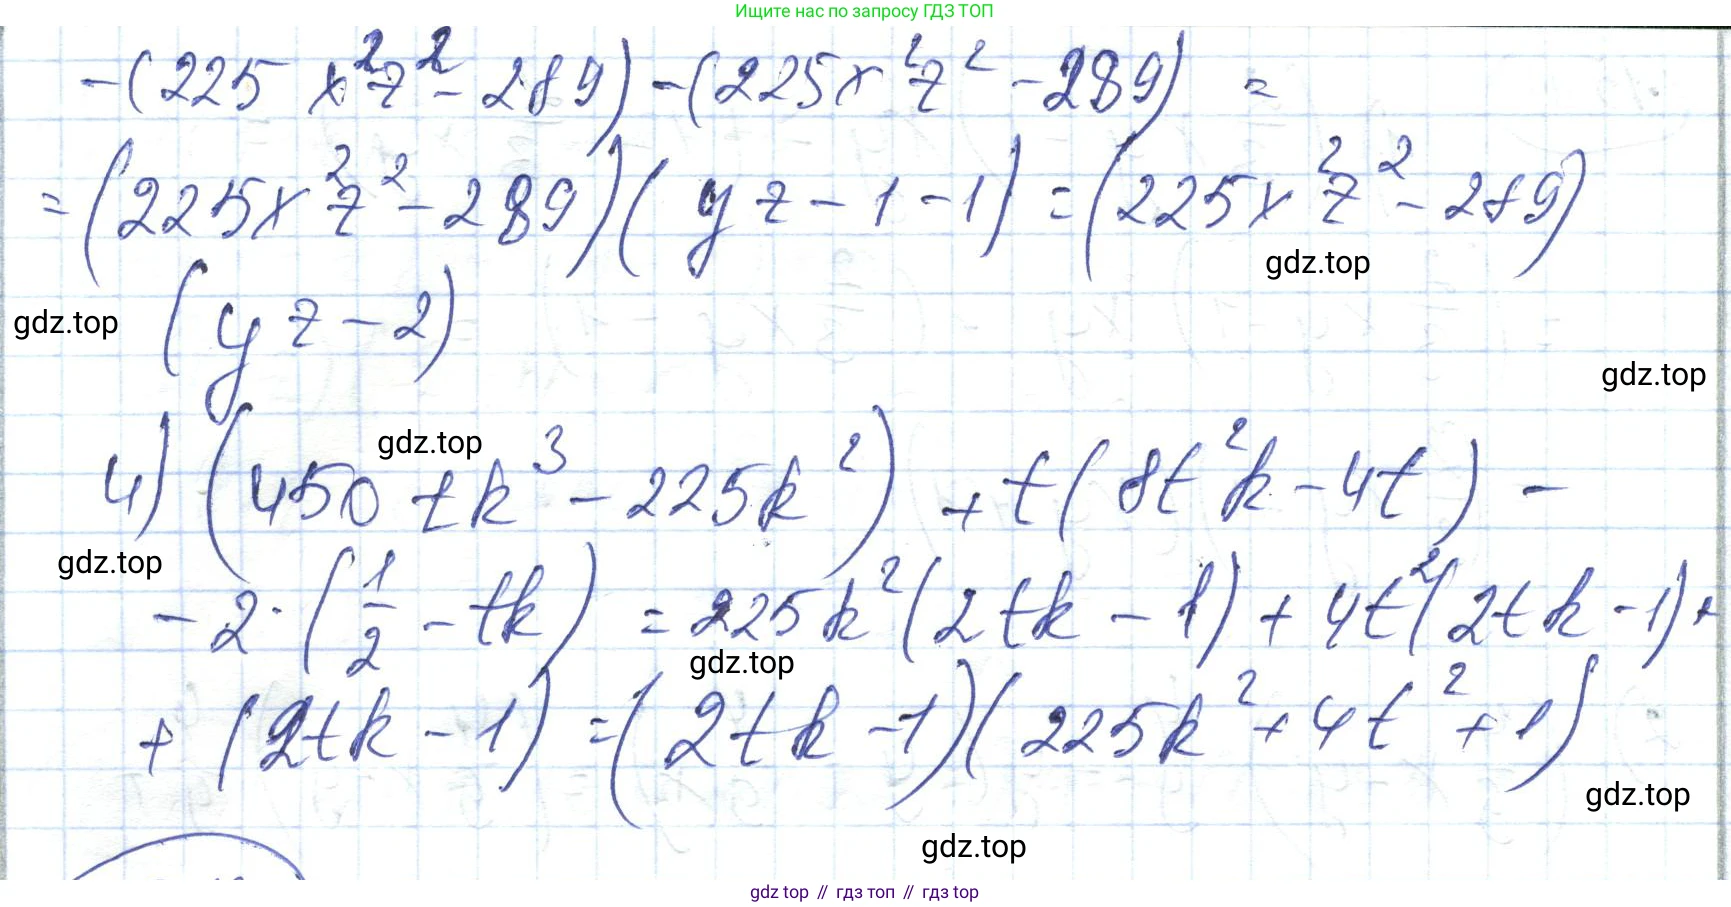 Ищите нас по запросу ГДЗ ТОП
-(225x²z² - 289) - (225x²z² - 289) =
= (225x²z² - 289)(yz - 1 - 1) = (225x²z² - 289)
gdz.top
gdz.top
(yz - 2)
gdz.top
gdz.top
4) (450tk³ - 225k²) + t(8t²k - 4t) -
gdz.top
- 2·(1/2 - tk) = 225k²(2tk - 1) + 4t²(2tk - 1) +
gdz.top
+ (2tk - 1) = (2tk - 1)(225k² + 4t² + 1)
gdz.top
gdz.top
gdz top // гдз топ // гдз top